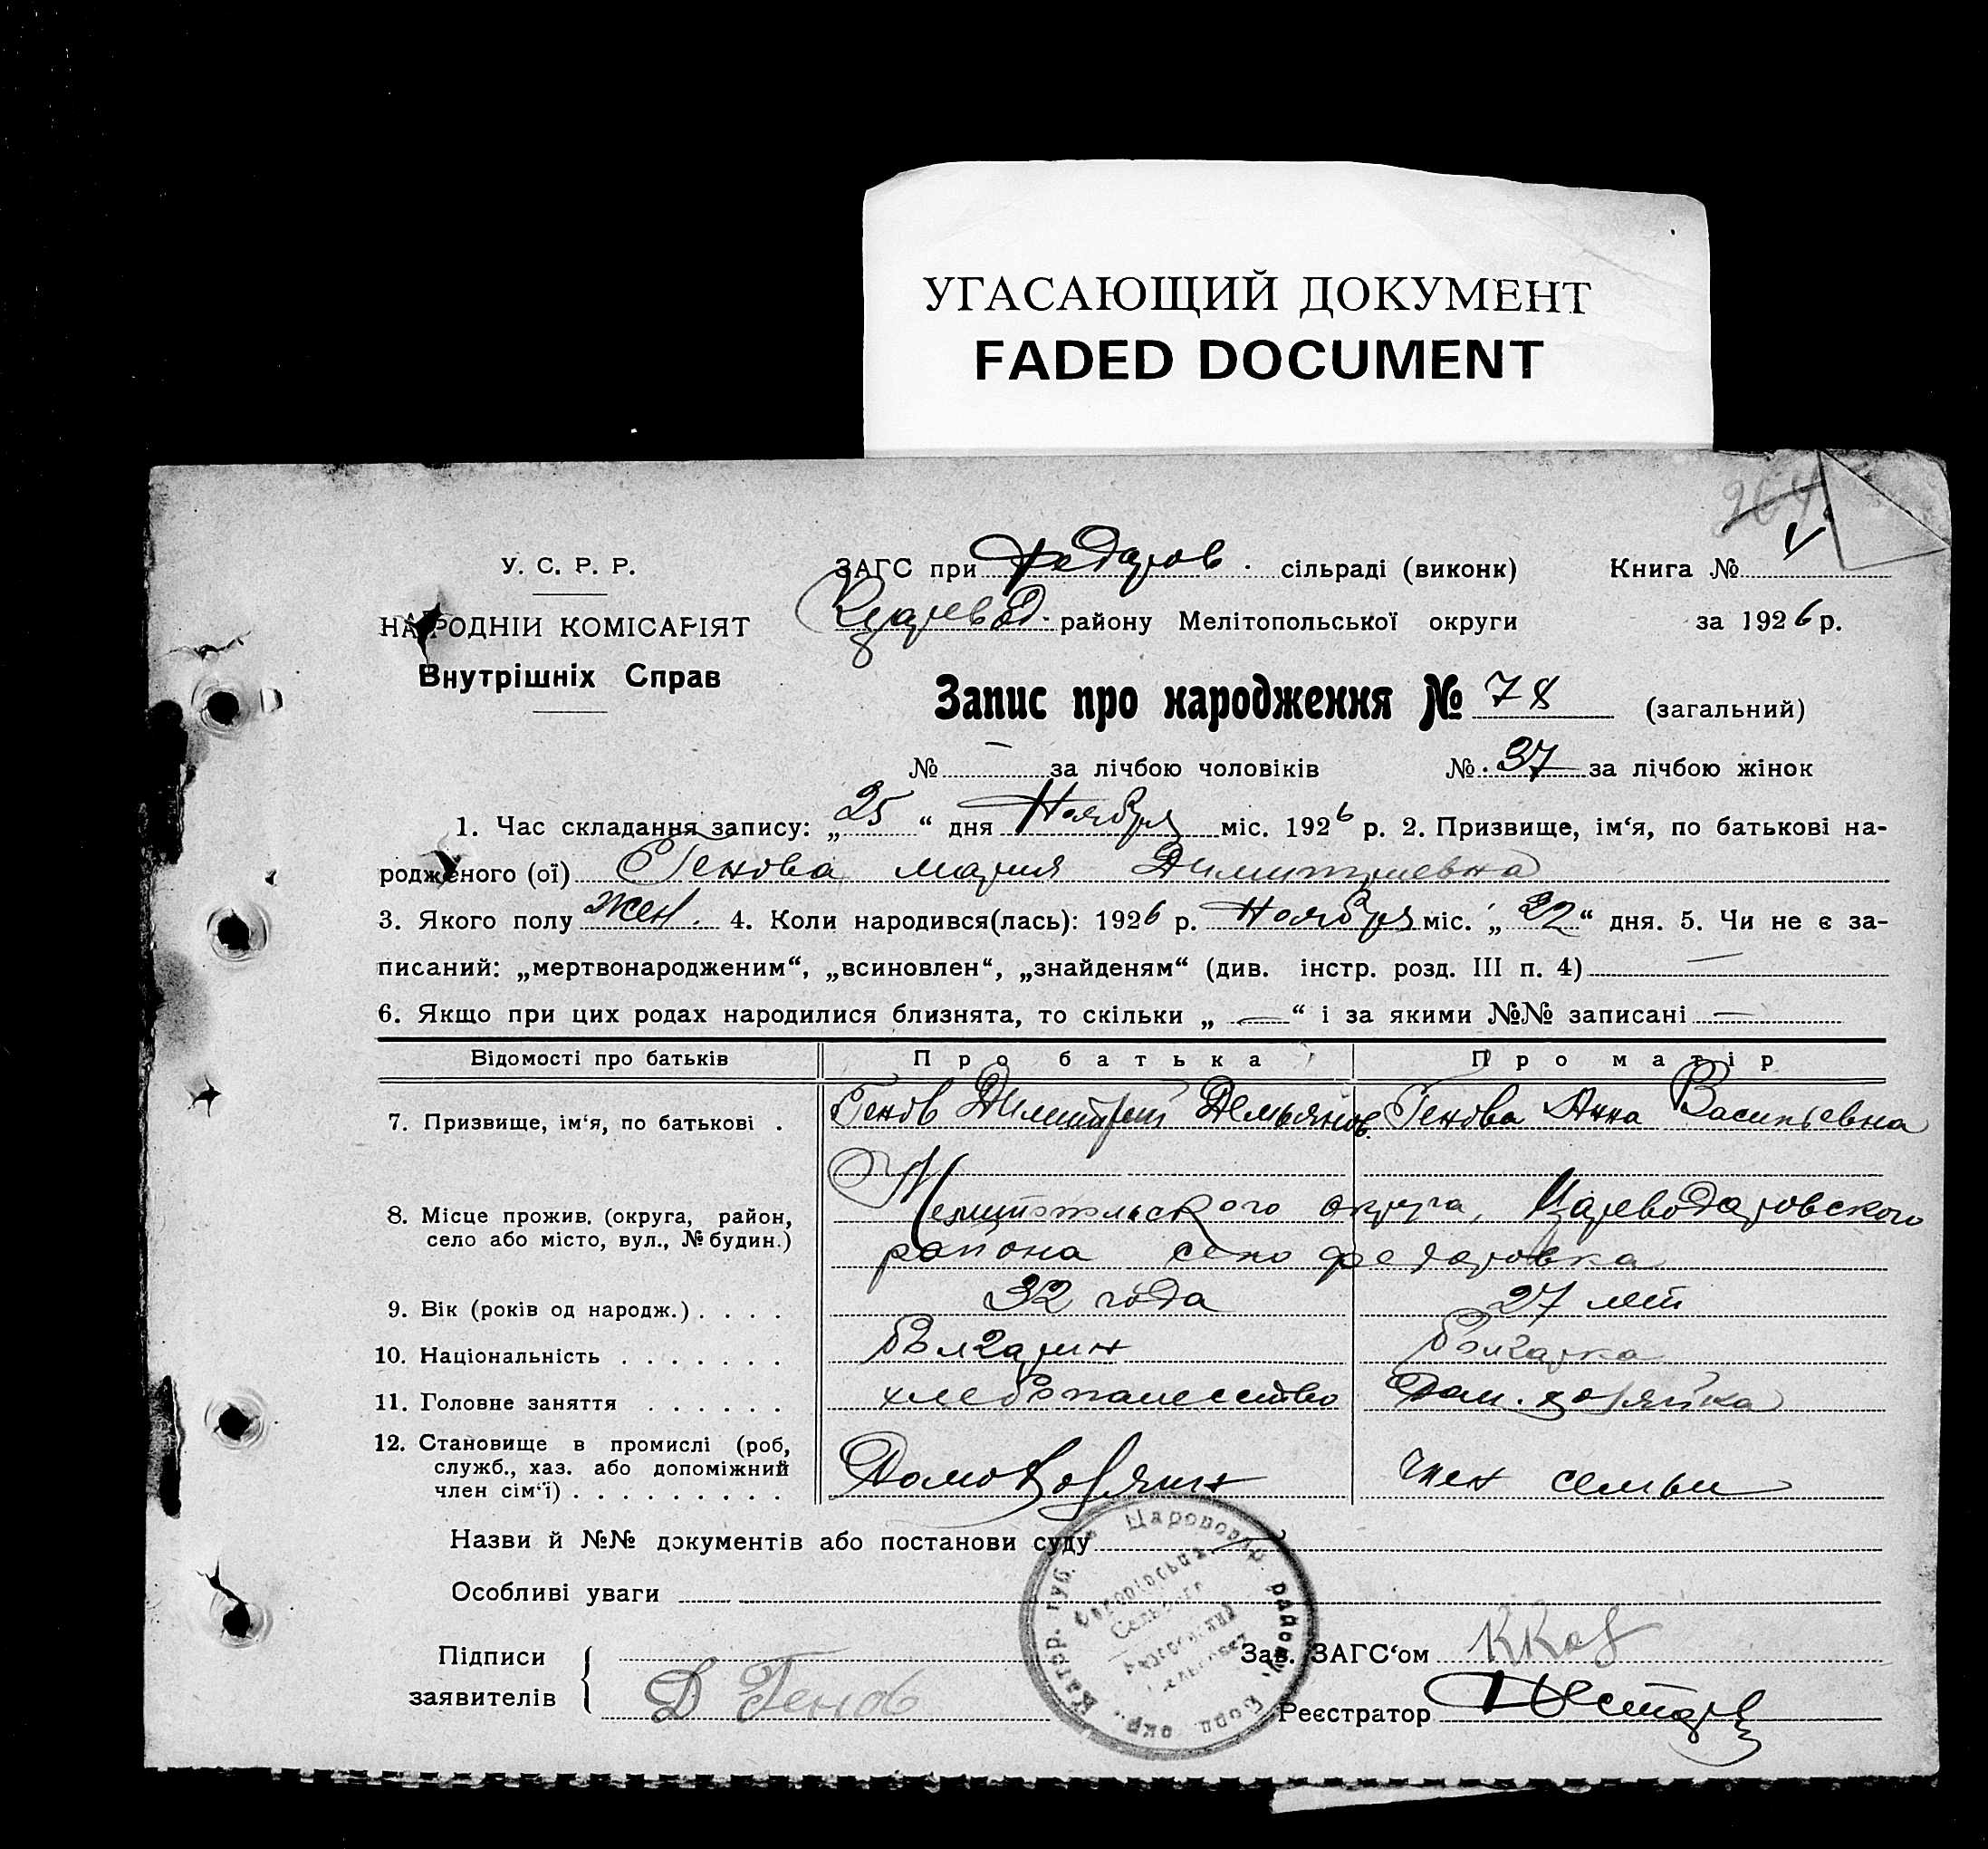 УГАСАЮЩИЙ ДОКУМЕНТ
FADED DOCUMENT
264
У. С. Р. Р.
ЗАГС при Федоров. сільраді (виконк) Книга № 4
НАРОДНІИ КОМІСАРІЯТ
Царевод. району Мелітопольської округи за 1926 р.
Внутрішніх Справ
Запис про народження № 78 (загальний)
№ — за лічбою чоловіків № 37 за лічбою жінок
1. Час складання запису: „25“ дня Ноября міс. 1926 р. 2. Призвище, ім‘я, по батькові на-
родженого (ої) Генова Мария Димитриевна
3. Якого полу Жен. 4. Коли народився(лась): 1926 р. Ноября міс. „22“ дня. 5. Чи не є за-
писаний: „мертвонародженим“, „всиновлен“, „знайденям“ (див. інстр. розд. III п. 4) —
6. Якщо при цих родах народилися близнята, то скільки „ — “ і за якими №№ записані —
Відомості про батьків Про батька Про матір
7. Призвище, ім‘я, по батькові . Генов Димитрий Демьянов. Генова Анна Васильевна
8. Місце прожив. (округа, район, Мелитопольского округа, Цареводаровского
село або місто, вул., № будин.) района село Федоровка
9. Вік (років од народж.) . . . . 32 года 27 лет
10. Національність . . . . . . . Болгарин Болгарка
11. Головне заняття . . . . . . хлебопашество Дом. хозяйка
12. Становище в промислі (роб,
служб., хаз. або допоміжний Домохозяин член семьи
член сім‘ї) . . . . . . . . .
Назви й №№ документів або постанови суду
Особливі уваги
Підписи
Зав. ЗАГС‘ом
заявителів Д Генов
Реєстратор
району